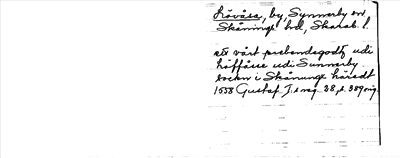 Lövåsa, by, Synnerby sn
Skånings hd, Skarab. l.
ett vårt prebendegodz udi
höffåsse udi Sunnerby
socken i Skånunge häredt
1558 Gustaf I:s reg. 28, s. 389 orig